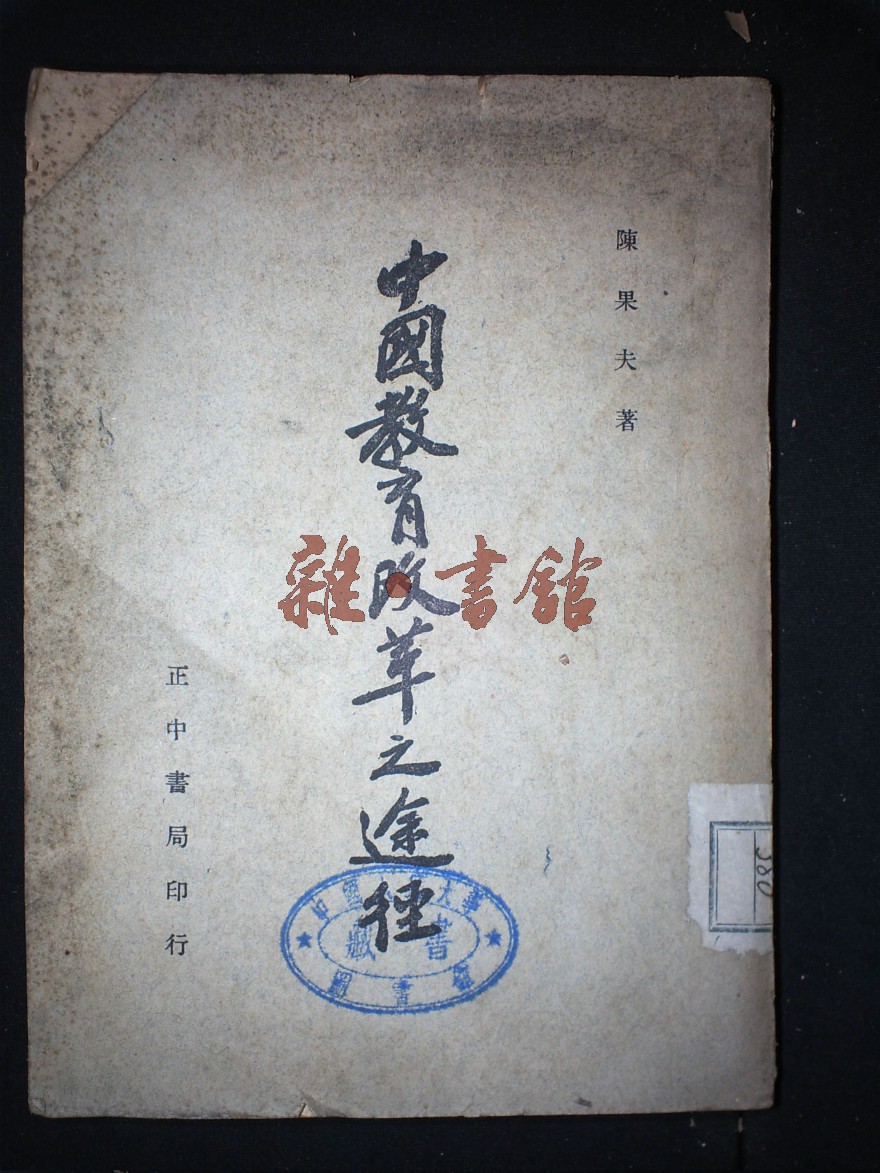 陳果夫著
中國教育改革之途徑
正中書局印行
雜·書館
藏書
圖書館
380